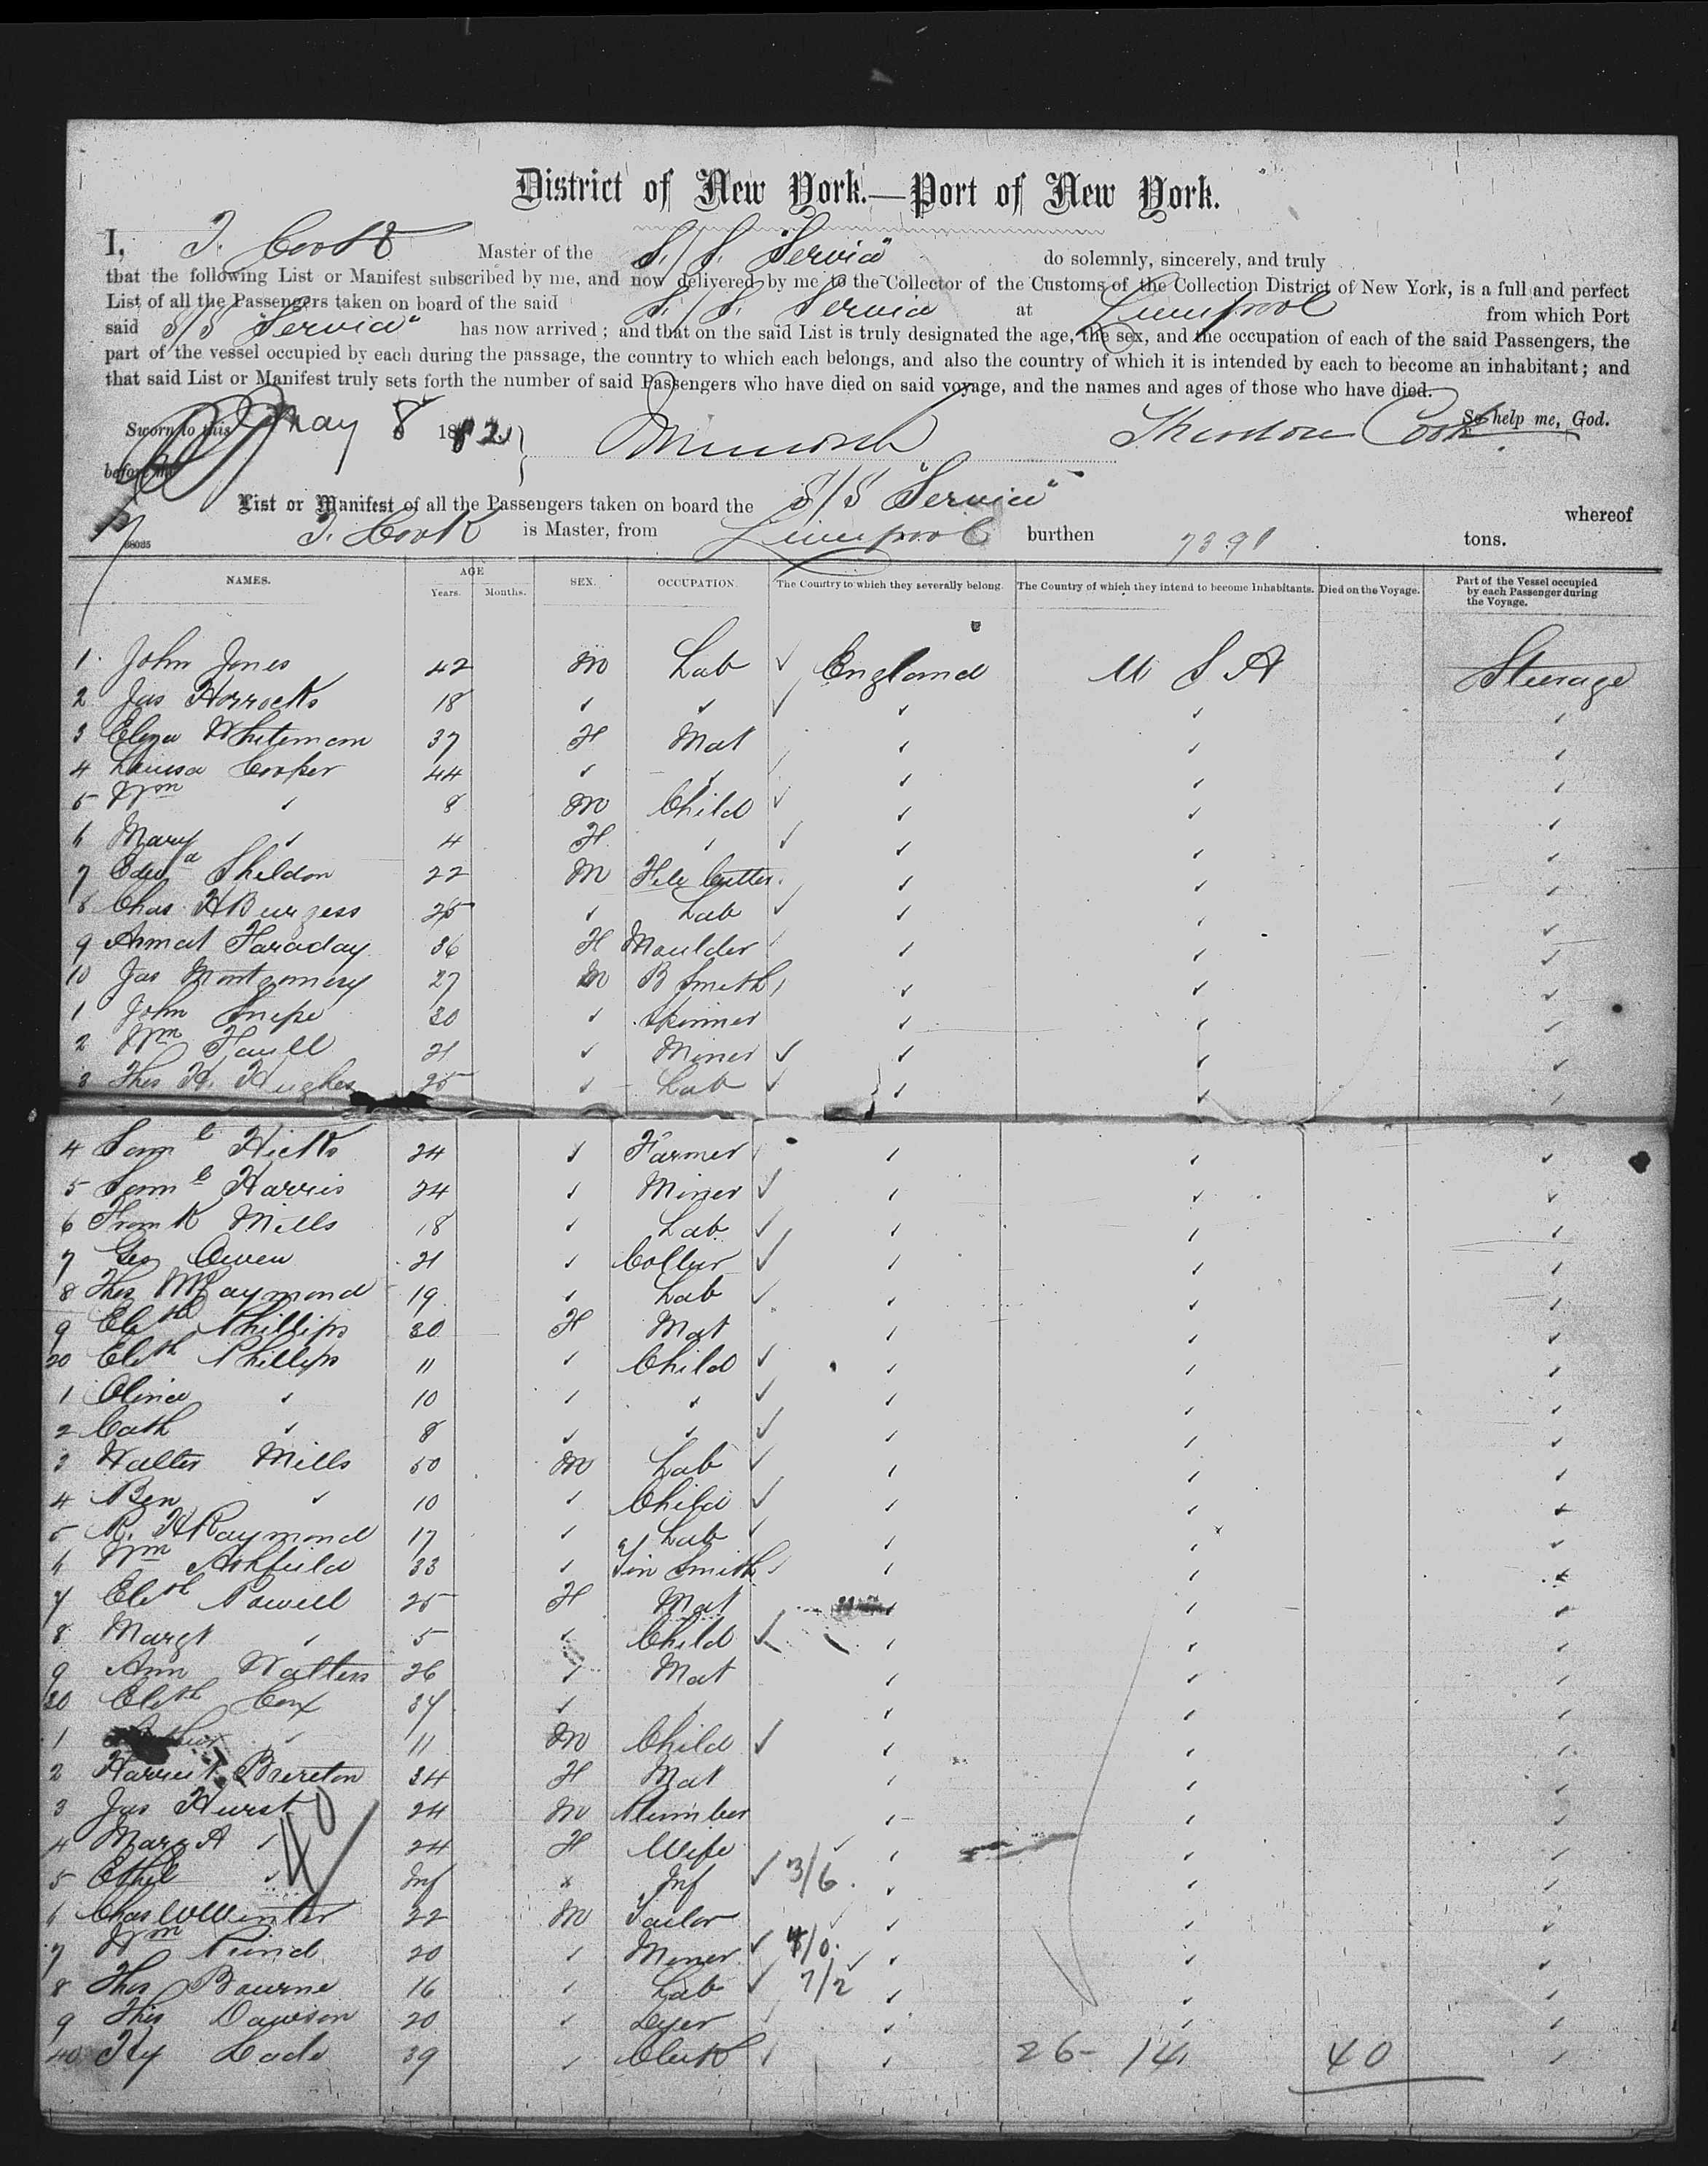 District of New York.—Port of New York.
I, T. Cook Master of the S/S "Servia" do solemnly, sincerely, and truly
that the following List or Manifest subscribed by me, and now delivered by me to the Collector of the Customs of the Collection District of New York, is a full and perfect
List of all the Passengers taken on board of the said S/S Servia at Liverpool from which Port
said S/S "Servia" has now arrived; and that on the said List is truly designated the age, the sex, and the occupation of each of the said Passengers, the
part of the vessel occupied by each during the passage, the country to which each belongs, and also the country of which it is intended by each to become an inhabitant; and
that said List or Manifest truly sets forth the number of said Passengers who have died on said voyage, and the names and ages of those who have died.
So help me, God.
Sworn to this May 8 1882 Theodore Cook
before me
List or Manifest of all the Passengers taken on board the S/S "Servia" whereof
T. Cook is Master, from Liverpool burthen 7391 tons.
NAMES. AGE Years. Months. SEX. OCCUPATION. The Country to which they severally belong. The Country of which they intend to become Inhabitants. Died on the Voyage. Part of the Vessel occupied by each Passenger during the Voyage.
1 John Jones 42 M Lab ✓ England U S A Steerage
2 Jas Horrocks 18 ✓
3 Eliza Whiteman 37 F Mat
4 Louisa Cooper 44
5 Wm 8 M Child ✓
6 Mary 4 F ✓
7 Edwd Sheldon 22 M File Cutter
8 Chas H Burgess 25 Lab ✓
9 Faraday 36 F Moulder
10 Jas Montgomery 27 M B Smith
1 John Snepe 30 Skinner
2 Wm 21 Miner ✓
3 Thos H. Hughes 25 Lab ✓
4 Saml Hicks 24 Farmer
5 Saml Harris 24 Miner ✓
6 Frank Mills 18 Lab ✓
7 Geo Owen 21 Collier ✓
8 Thos Raymond 19 Lab ✓
9 Elizth Phillips 30 F Mat
20 Elizth Phillips 11 Child ✓
1 10 ✓
2 Cath 8 ✓
3 Walter Mills 50 M Lab ✓
4 Ben 10 Child ✓
5 R. H Raymond 17 Lab ✓
6 Wm Ashfield 33 Tin Smith
7 Elizth Powell 25 F Mat
8 Margt 5 Child ✓
9 Ann Walters 26 Mat
30 Elizth Cox 34
1 Arthur 11 M Child ✓
2 Harriet Brereton 34 F Mat
3 Jas Hurst 24 M Plumber
4 Mary A 24 F Wife
5 Ethel Inf Inf ✓ 3/6
6 Chas W Winter 22 M Tailor
7 Wm 20 Miner ✓ 4/0
8 Thos Bourne 16 Lab ✓ 7/2
9 Thos Dawson 20 Dyer
40 Hy 39 Clerk ✓ 26- 14 40